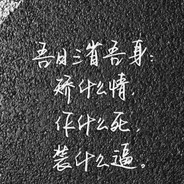 吾日三省吾身:
矫什么情,
作什么死,
装什么逼。